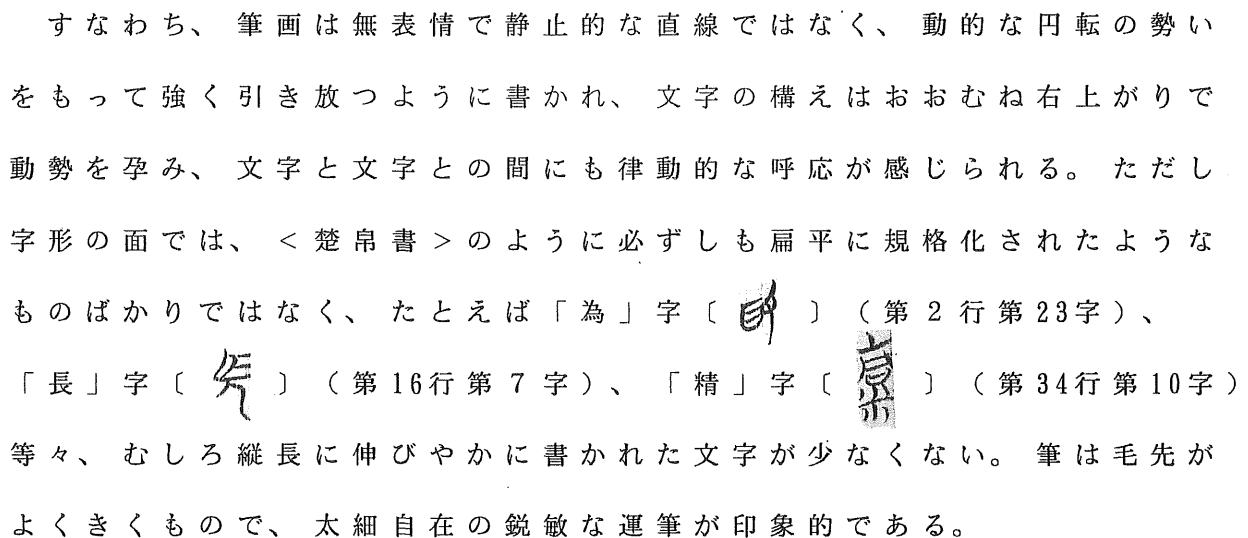 すなわち、筆画は無表情で静止的な直線ではなく、動的な円転の勢い
をもって強く引き放つように書かれ、文字の構えはおおむね右上がりで
動勢を孕み、文字と文字との間にも律動的な呼応が感じられる。ただし
字形の面では、＜楚帛書＞のように必ずしも扁平に規格化されたような
ものばかりではなく、たとえば「為」字〔　〕（第2行第23字）、
「長」字〔　〕（第16行第7字）、「精」字〔　〕（第34行第10字）
等々、むしろ縦長に伸びやかに書かれた文字が少なくない。筆は毛先が
よくきくもので、太細自在の鋭敏な運筆が印象的である。